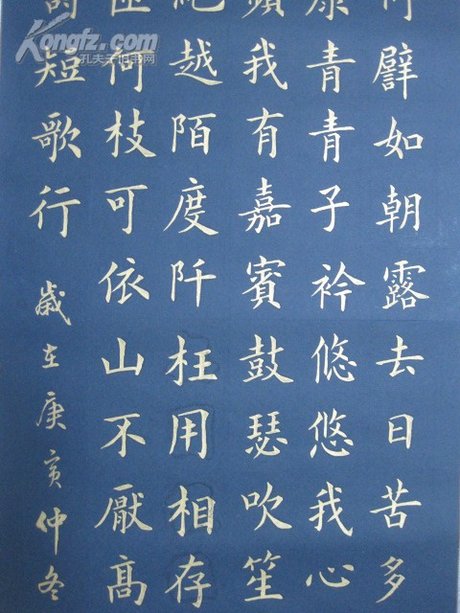 譬如朝露去日苦多
康青青子衿悠悠我心
蘋我有嘉賓鼓瑟吹笙
絕越陌度阡枉用相存
匝何枝可依山不厭高
短歌行
歲在庚寅仲冬
Kongfz.com
孔夫子旧书网